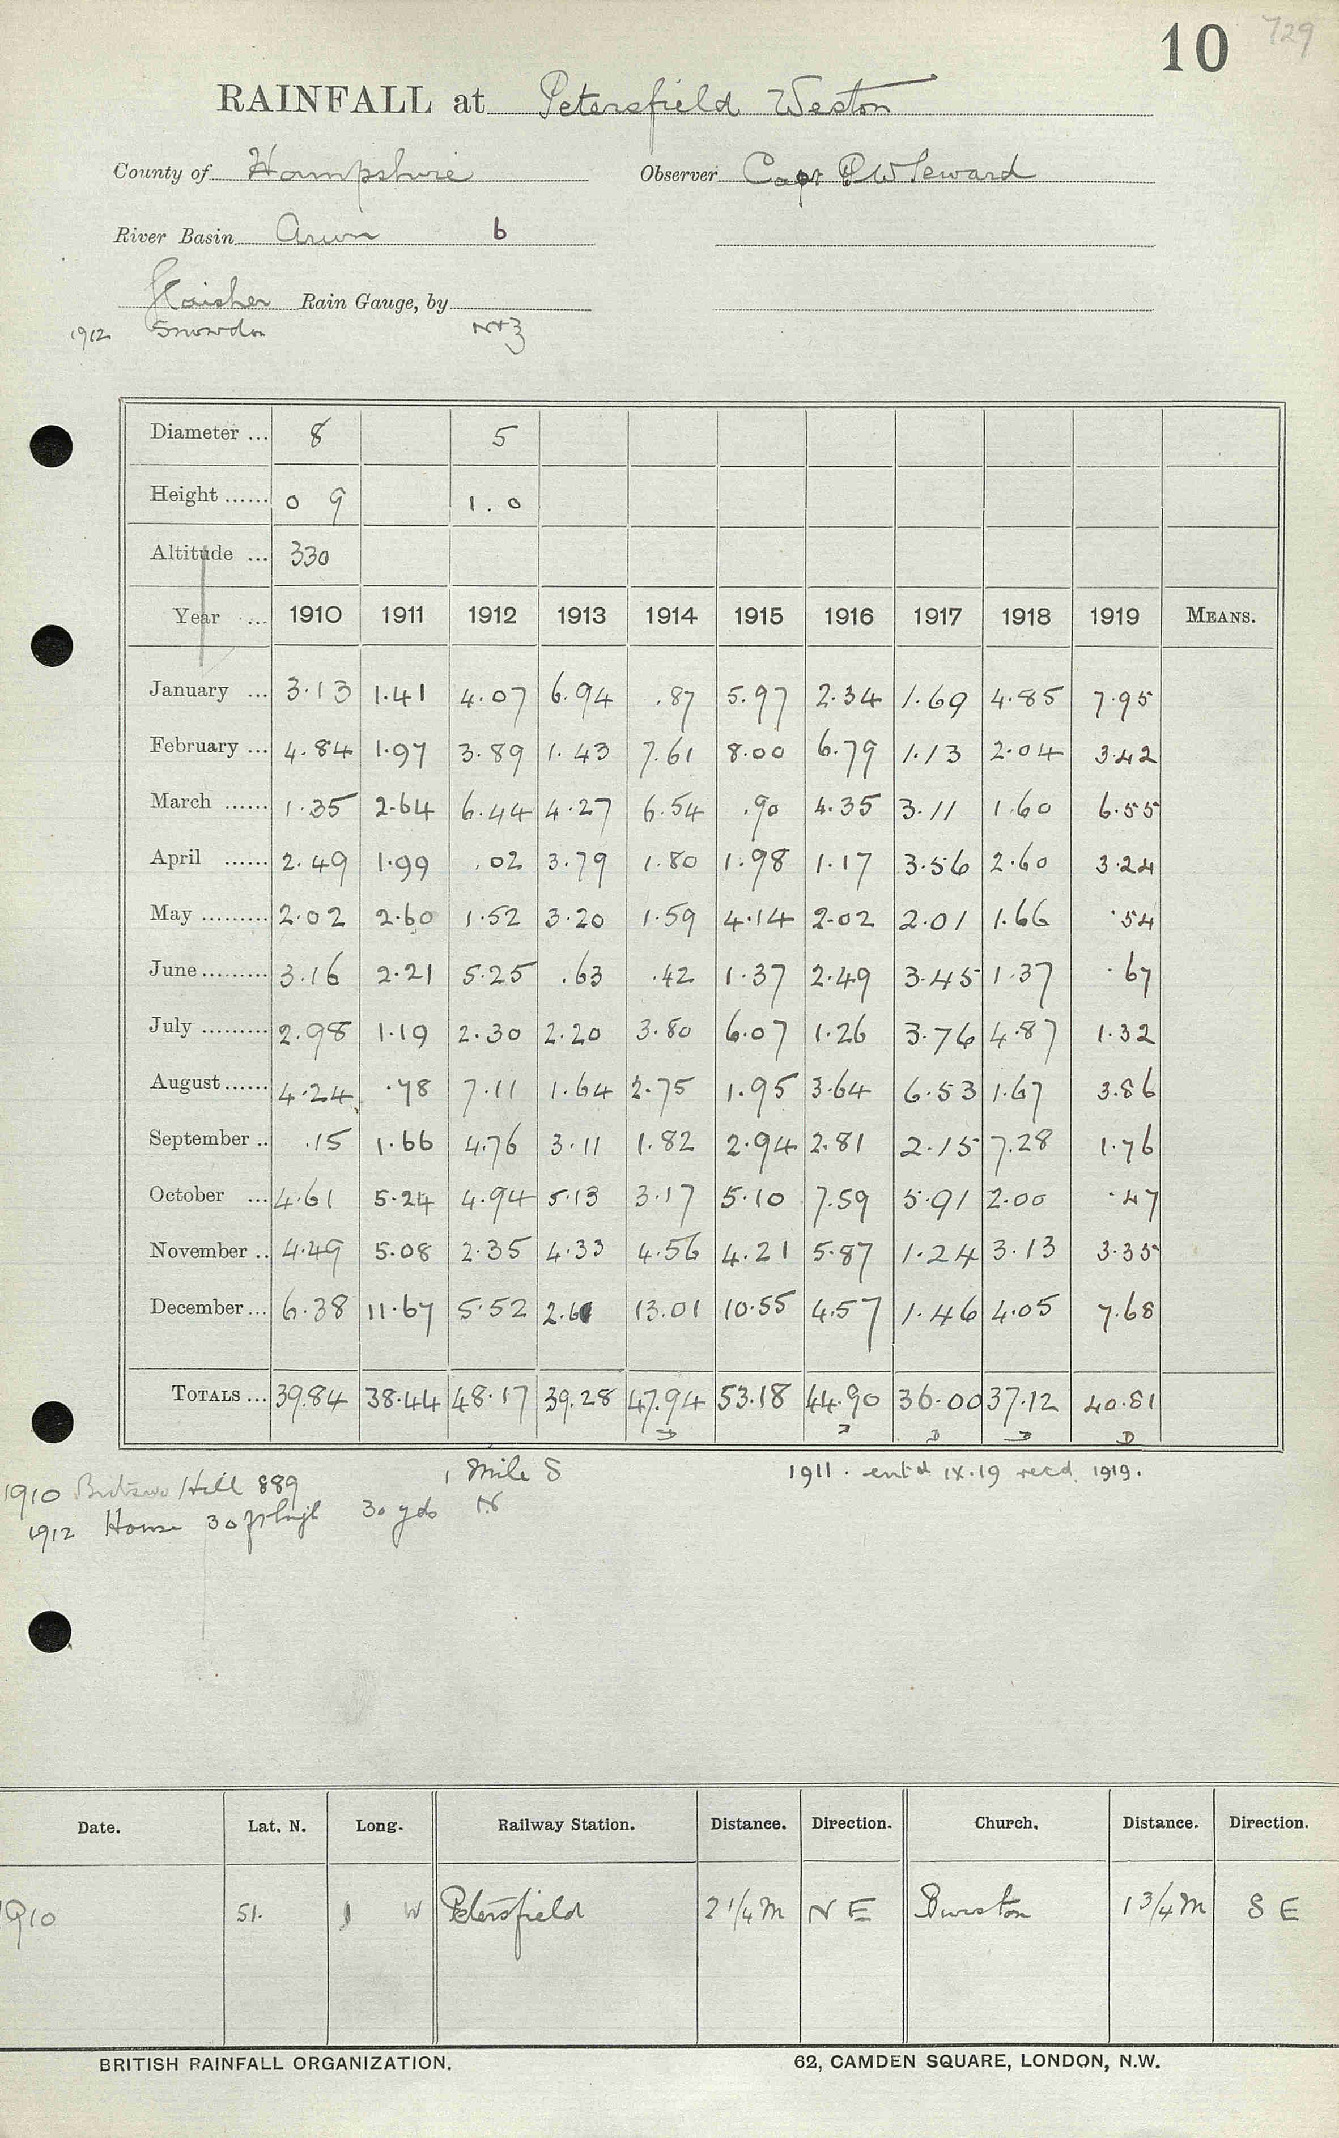 10 729
RAINFALL at Petersfield Weston
County of Hampshire Observer Capt P W Seward
River Basin Arun b
Glaisher Rain Gauge, by
1912 Snowdon
Diameter ... 8 5
Height ...... 0 9 1.0
Altitude ... 330
Year ... 1910 1911 1912 1913 1914 1915 1916 1917 1918 1919 MEANS.
January ... 3.13 1.41 4.07 6.94 .87 5.97 2.34 1.69 4.85 7.95
February ... 4.84 1.97 3.89 1.43 7.61 8.00 6.79 1.13 2.04 3.42
March ...... 1.35 2.64 6.44 4.27 6.54 .90 4.35 3.11 1.60 6.55
April ...... 2.49 1.99 .02 3.79 1.80 1.98 1.17 3.56 2.60 3.24
May ......... 2.02 2.60 1.52 3.20 1.59 4.14 2.02 2.01 1.66 .54
June ......... 3.16 2.21 5.25 .63 .42 1.37 2.49 3.45 1.37 .67
July ......... 2.98 1.19 2.30 2.20 3.80 6.07 1.26 3.76 4.87 1.32
August ...... 4.24 .78 7.11 1.64 2.75 1.95 3.64 6.53 1.67 3.86
September .. .15 1.66 4.76 3.11 1.82 2.94 2.81 2.15 7.28 1.76
October ... 4.61 5.24 4.94 5.13 3.17 5.10 7.59 5.91 2.00 .47
November .. 4.49 5.08 2.35 4.33 4.56 4.21 5.87 1.24 3.13 3.35
December ... 6.38 11.67 5.52 2.61 13.01 10.55 4.57 1.46 4.05 7.68
TOTALS ... 39.84 38.44 48.17 39.28 47.94 53.18 44.90 36.00 37.12 40.81
D D D D D
1910 Hill 889 1 Mile S 1911. ent'd IX.19 recd. 1919.
1912 House 30 ft high 30 yds N
Date. Lat. N. Long. Railway Station. Distance. Direction. Church. Distance. Direction.
1910 51. 1 W Petersfield 2 1/4 M N E Buriton 1 3/4 M S E
BRITISH RAINFALL ORGANIZATION. 62, CAMDEN SQUARE, LONDON, N.W.